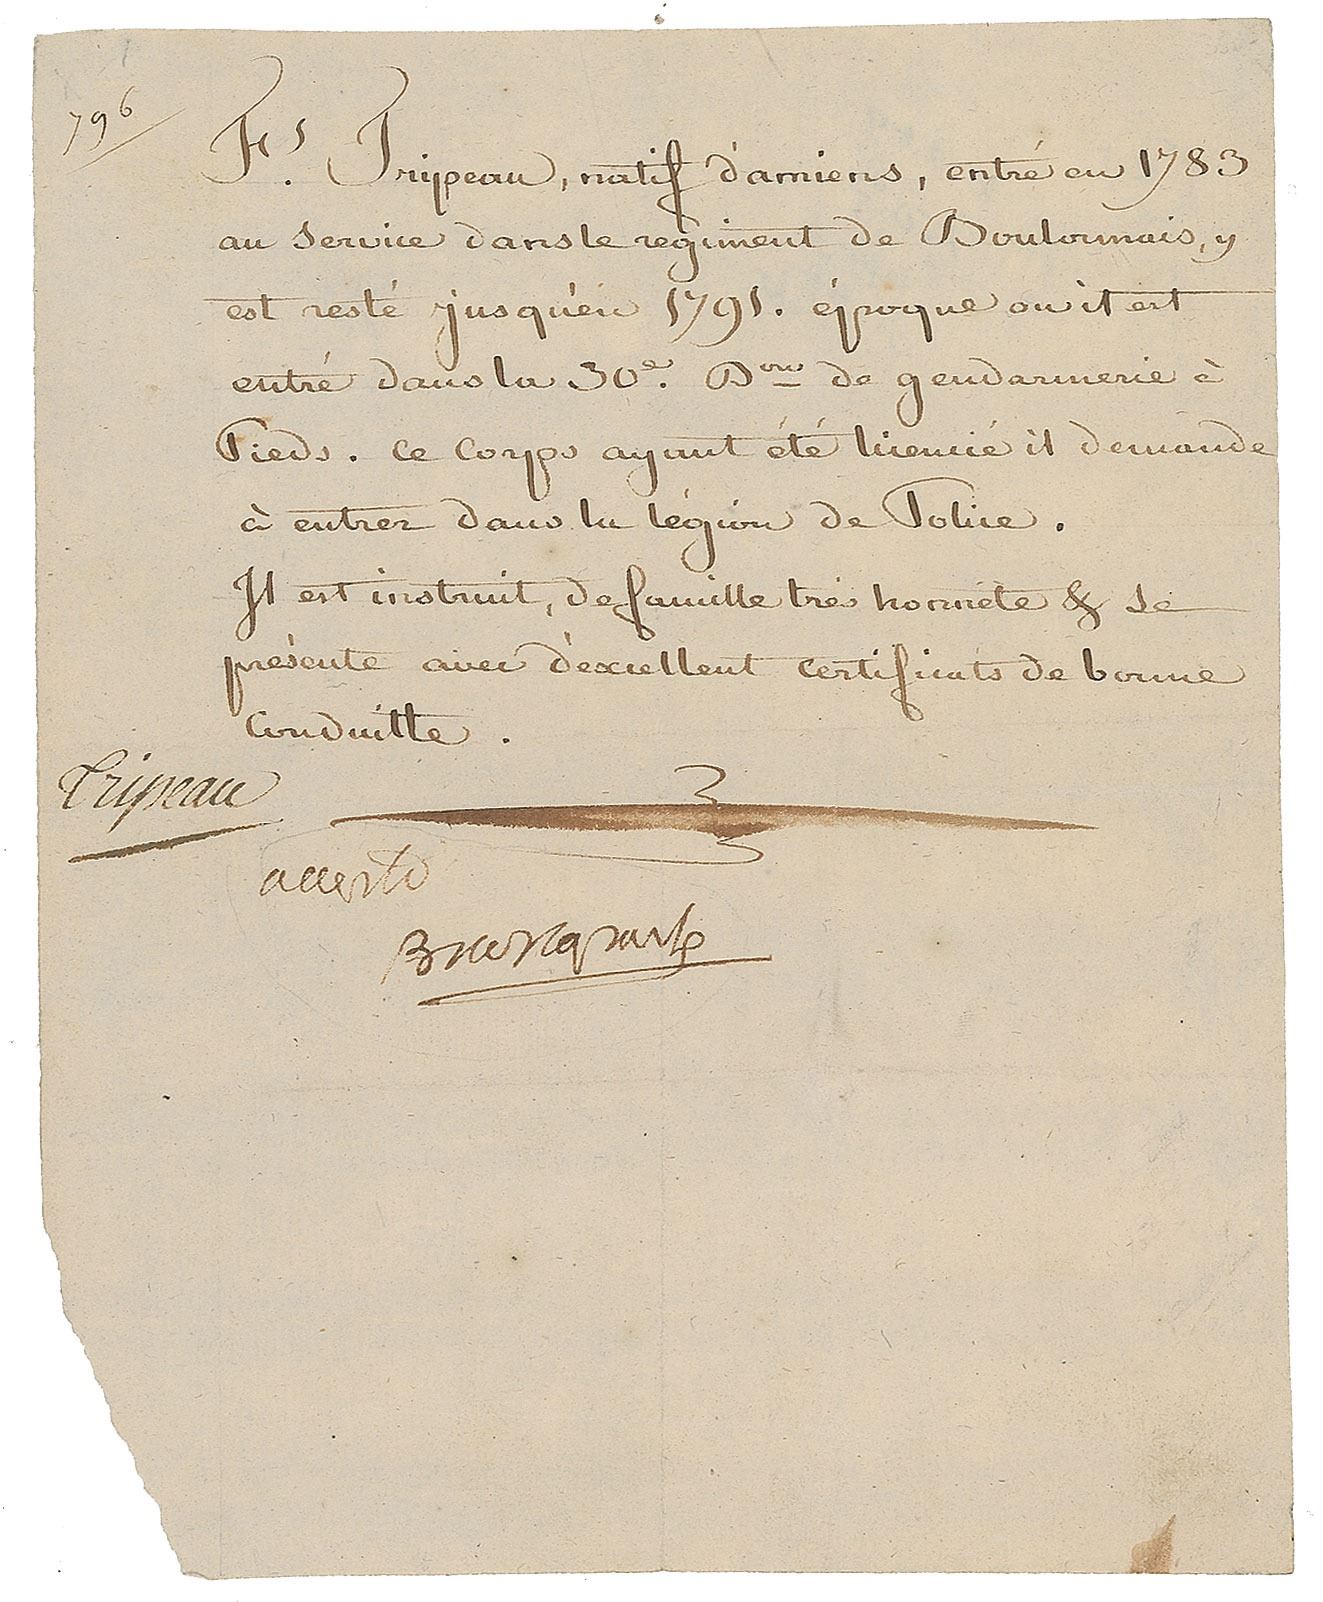 796
Fs. Tripeau, natif d'amiens, entré en 1783
au service dans le regiment de Boulonnais, y
est resté jusqu'en 1791. époque ou il est
entré dans la 30e. Don de gendarmerie à
Pieds. Ce Corps ayant été licencié il demande
à entrer dans la légion de Police.
Il est instruit, de famille très honnête & se
présente avec d'excellent certificats de bonne
Conduitte.
Tripeau
accordé
Buonaparte